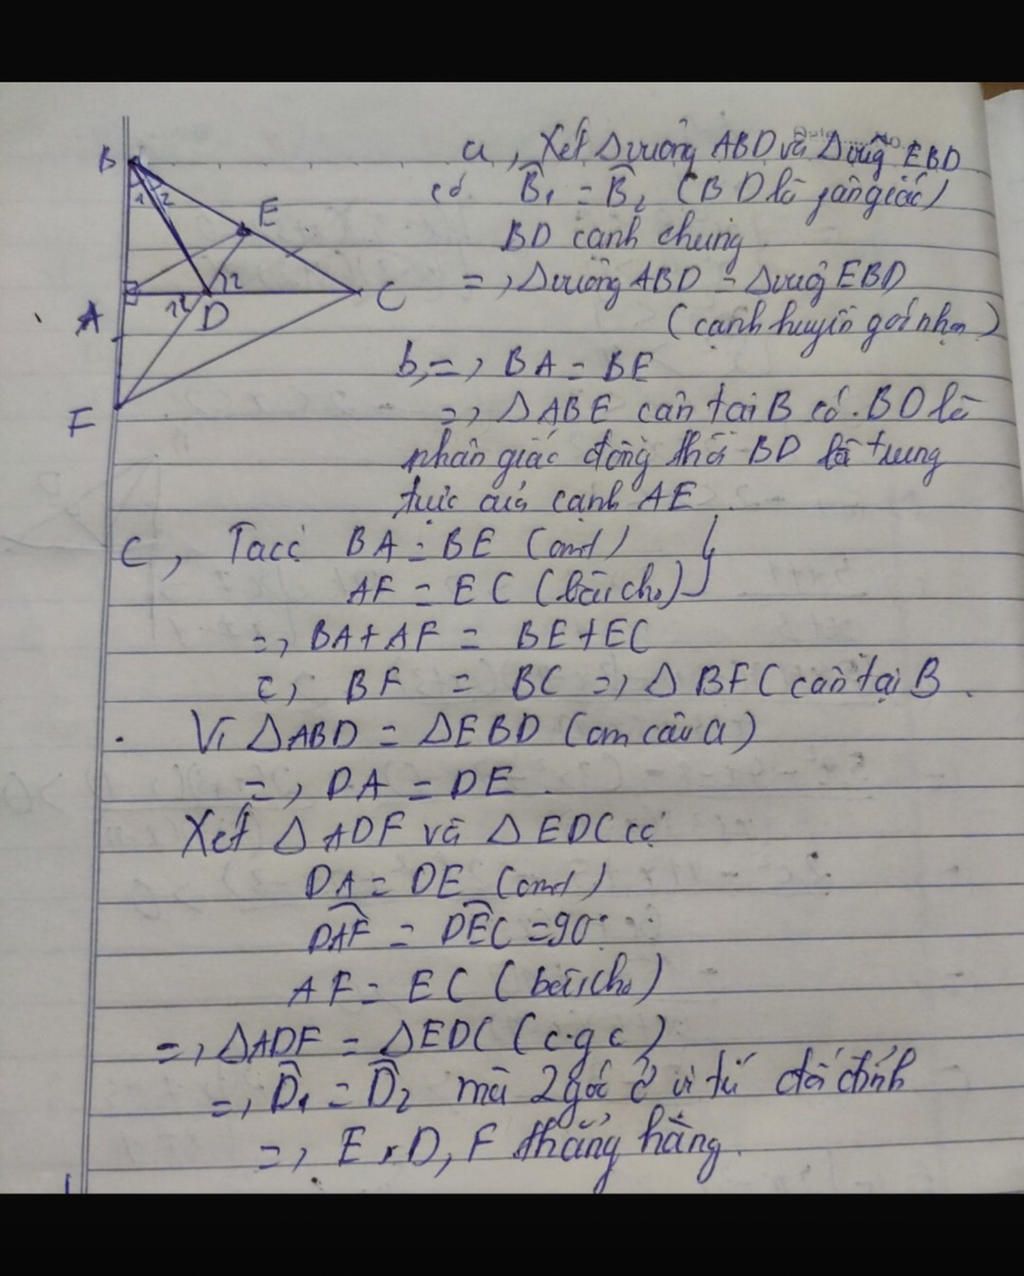 a, Xét Δvuông ABD và Δvuôg EBD
có B̂₁ = B̂₂ (BD là fângiác)
BD cạnh chung
=> Δvuông ABD = Δvuôg EBD
(cạnh huyền góc nhọn)
b, => BA = BE
=> ΔABE cân tại B có BD là
phân giác đồng thời BD là trung
trực của cạnh AE
C, Ta có BA = BE (cmt)
AF = EC (bài cho)
=> BA + AF = BE + EC
c, BF = BC => ΔBFC cân tại B.
Vì ΔABD = ΔEBD (cm câu a)
=> DA = DE.
Xét ΔADF và ΔEDC có
DA = DE (cmt)
DAF = DEC = 90°
AF = EC (bài cho)
=> ΔADF = ΔEDC (c.g.c)
=> D̂₁ = D̂₂ mà 2 góc ở vị tí đối đỉnh
=> E, D, F thẳng hàng.
B
1 2
E
12
A
12
D
C
F